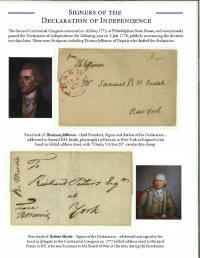 SIGNERS OF THE
DECLARATION OF INDEPENDENCE
The Second Continental Congress convened on 10 May 1775 at Philadelphia's State House, and unanimously
passed the Declaration of Independence the following year on 4 July 1776, publicly announcing the decision
two days later. There were 56 signers, including Thomas Jefferson of Virginia who drafted the declaration.
free
Th: Jefferson
Mr. Samuel B. H. Judah.
New York
Free frank of Thomas Jefferson - third President, Signer and Author of the Declaration -
addressed to Samuel B.H. Judah, playwright and lawyer, in New York and signed in his
hand on folded address sheet, with "Charlo, VA circular date stamp.
To
Richard Peters Esqr.
York
Free frank of Robert Morris - Signer of the Declaration - addressed and signed in his
hand as delegate to the Continental Congress on 1777 folded address sheet to Richard
Peters in NY, who was Secretary to the Board of War at this time during the Revolution.